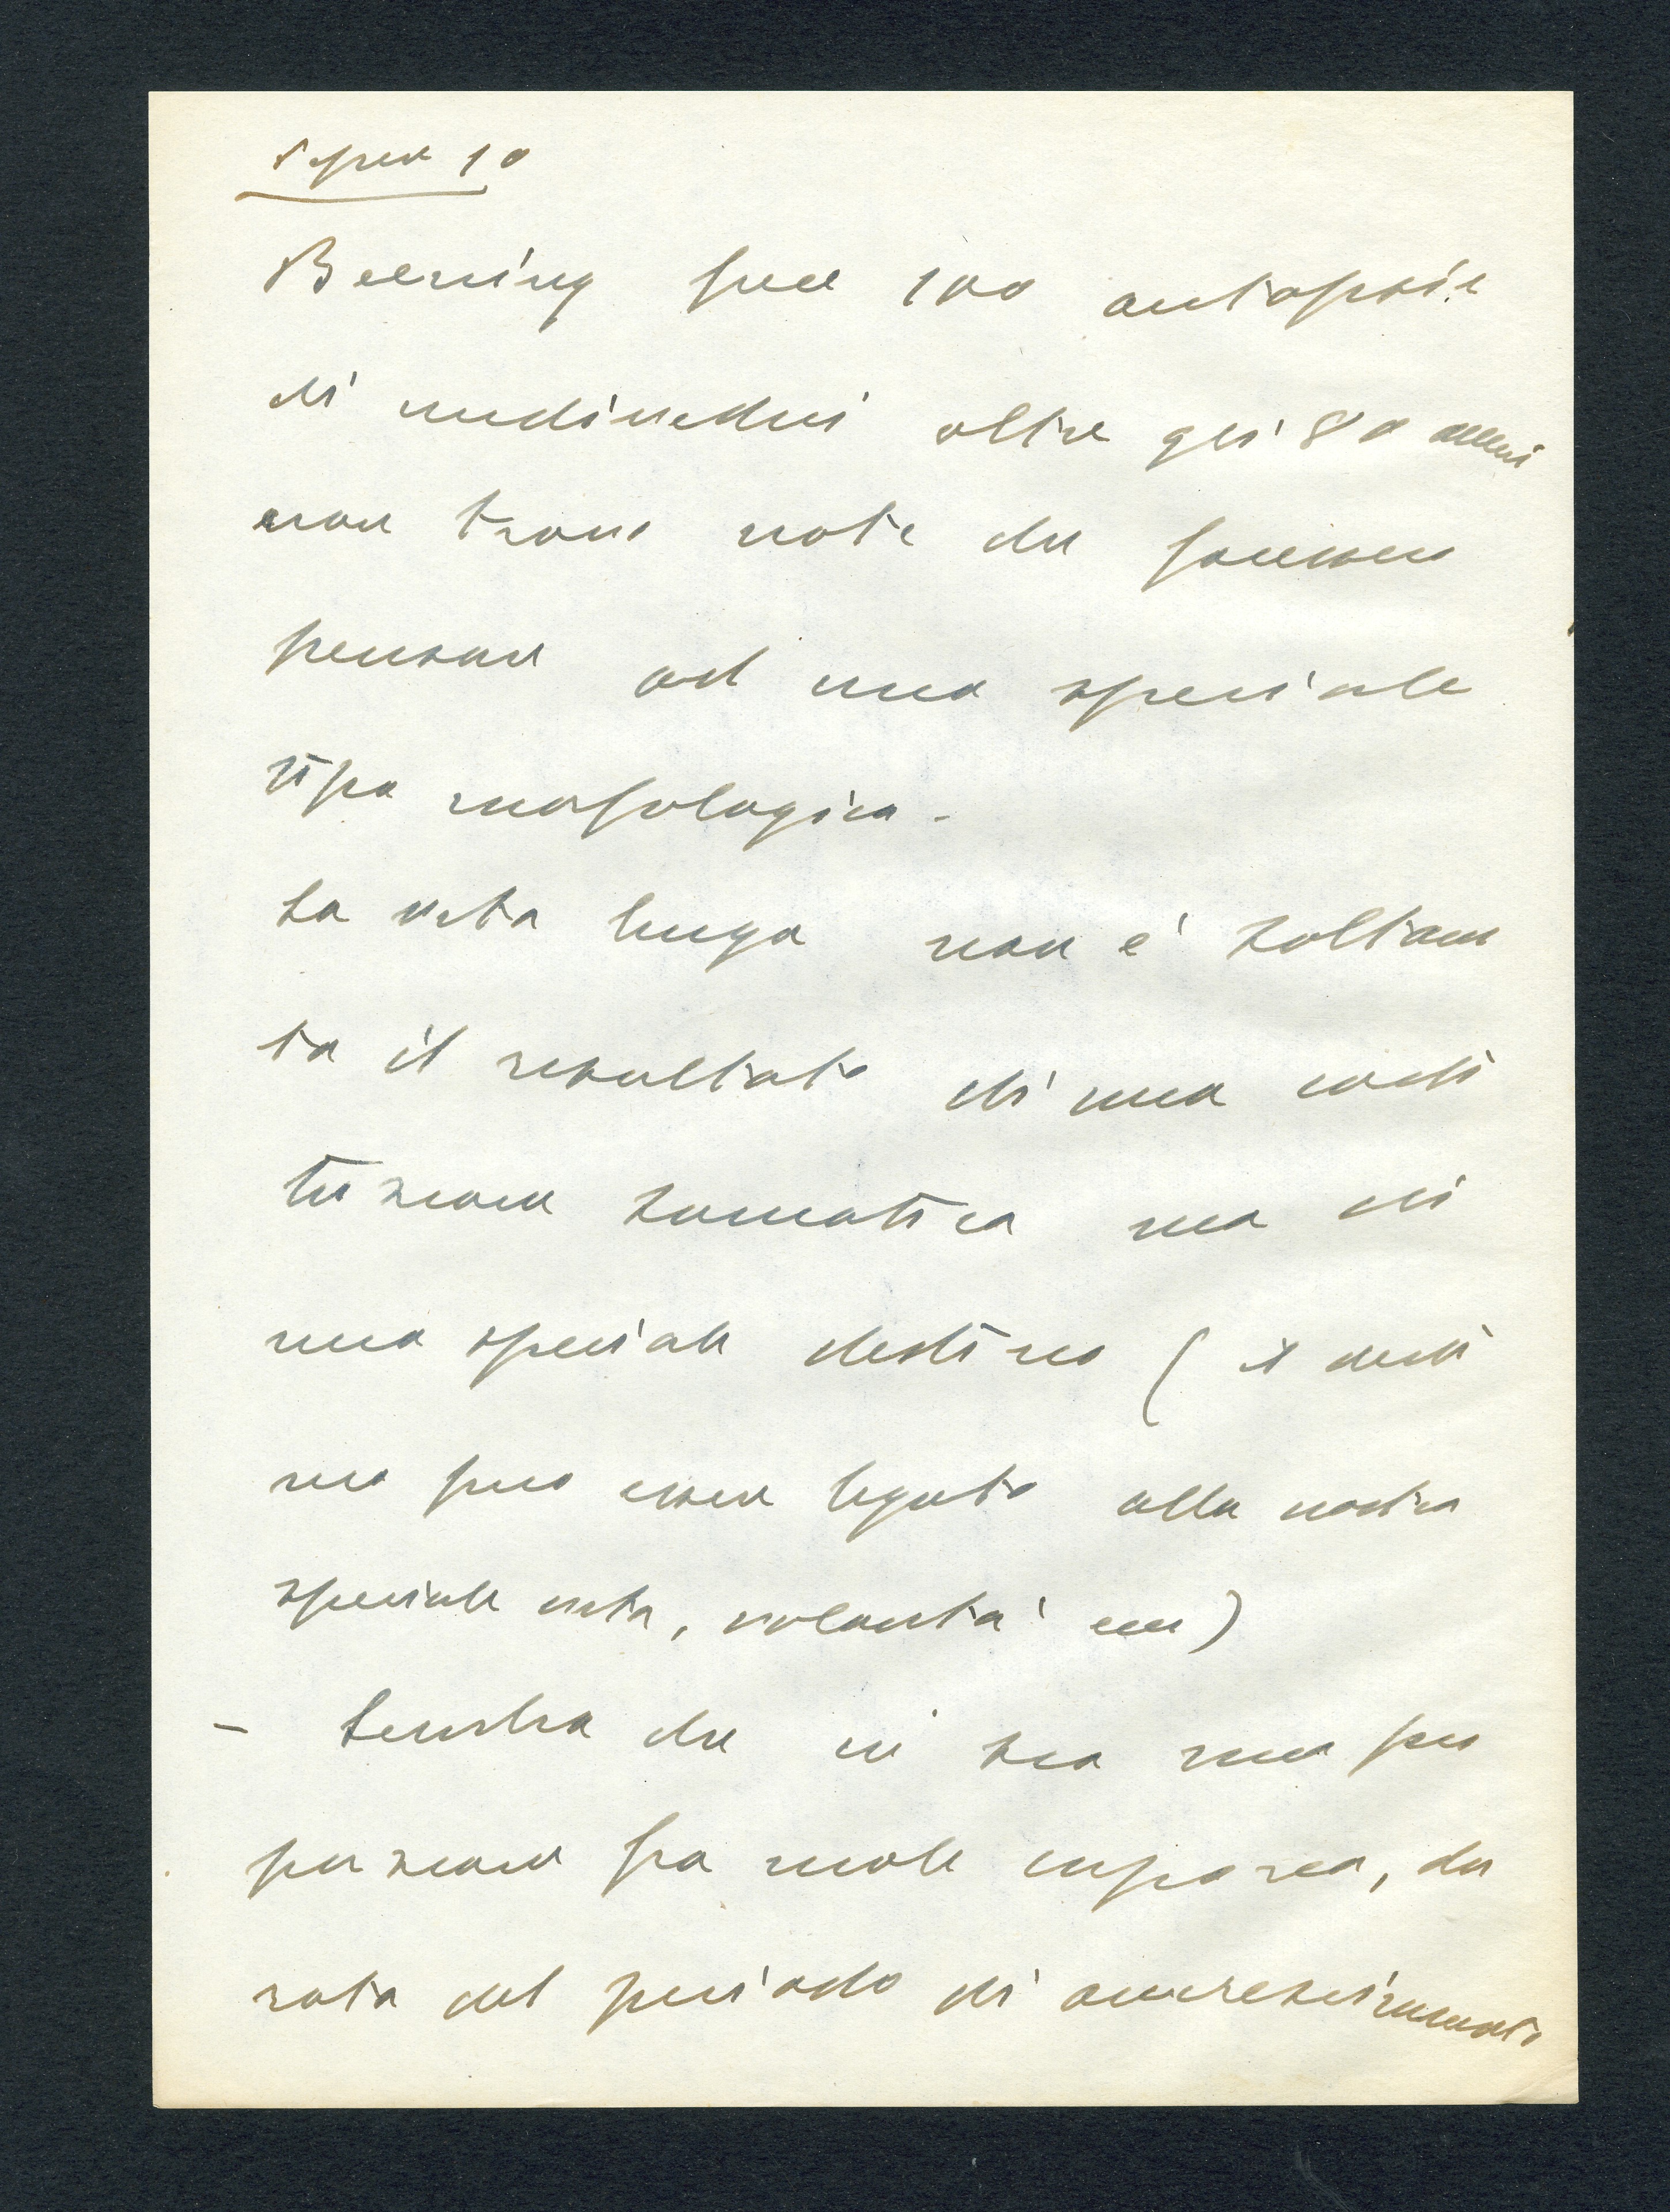 10
Beerning fece 100 autopsie
di individui oltre gli 80 anni
non trovò note che facciano
pensare ad una speciale
tipo morfologico.
La vita lunga non è soltan
to il resultato di una costi
tuzione somatica ma di
una speciale destino (il desti
no può essere legato alla nostra
speciale vita, volontà ecc)
- Sembra che vi sia una pro
porzione fra mole corporea, du
rata del periodo di accrescimento